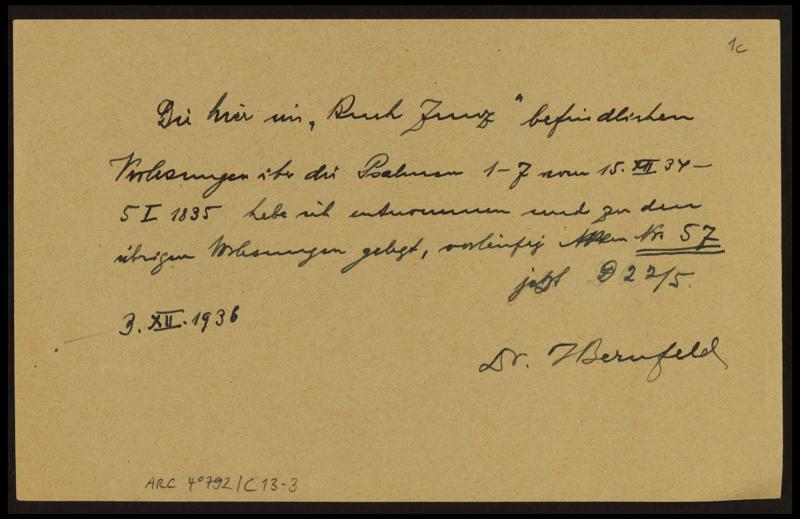 1c
Die hier im „Buch Zunz“ befindlichen
Vorlesungen über die Psalmen 1–7 vom 15. XII 34–
5 I 1835 habe ich entnommen und zu den
übrigen Vorlesungen gelegt, vorläufig Nr. 57
jetzt D 22/5.
3. XII. 1936
Dr. I Bernfeld
ARC 4° 792/C 13-3